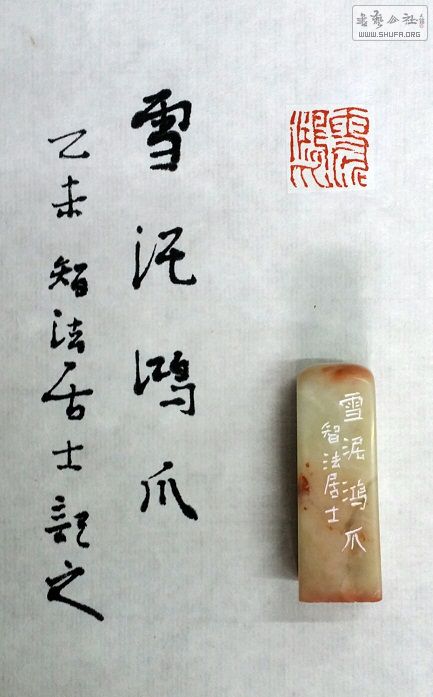 書艺公社
WWW.SHUFA.ORG
雪泥鴻爪
雪泥鴻爪
乙未智法居士記之
雪泥鴻爪
智法居士